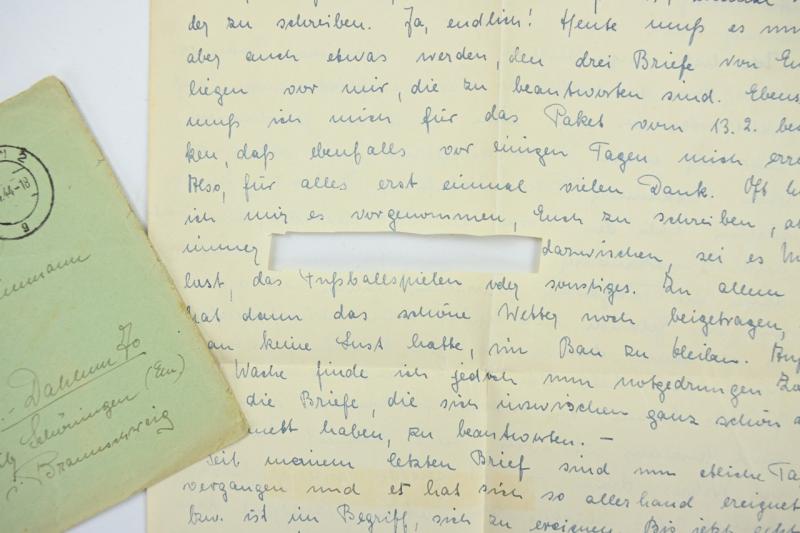 44-18
Dahlum
Schöningen (Elm)
Braunschweig
der zu schreiben. Ja, endlich! Heute muß es nun
aber auch etwas werden, den drei Briefe von
liegen vor mir, die zu beantworten sind.
muß ich mich für das Paket vom 13.2.
ken, daß ebenfalls vor einigen Tagen mich
Also, für alles erst einmal vielen Dank. Oft
ich mir es vorgenommen, Euch zu schreiben,
immer dazwischen, sei es
lust, das Fußballspielen oder sonstiges. Zu allem
hat dann das schöne Wetter noch beigetragen,
an keine Lust hatte, im Bau zu bleiben.
Wache finde ich jedoch nun notgedrungen
die Briefe, die sich inzwischen ganz schön
haben, zu beantworten. —
Seit meinem letzten Brief sind nun etliche
vergangen und es hat sich so allerhand ereignet
bzw. ist im Begriff, sich zu ereignen. Bis jetzt